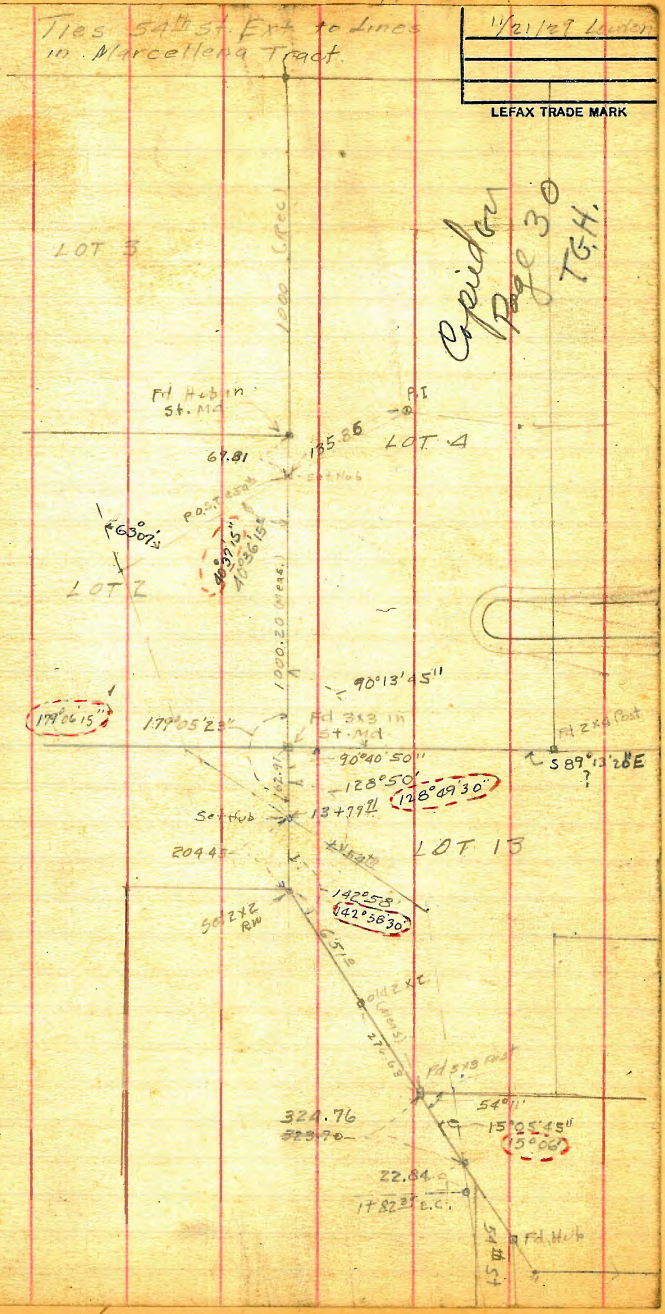 Ties 54th St. Ext. to Lines
in Marcellena Tract.
11/21/29
LEFAX TRADE MARK
Copied on
Page 30
T.G.H.
LOT 3
1000 (Rec)
Fd Hub in
St. Md
P.I
LOT 4
67.81
135.86
Set Hub
P.O.S.T.
63°07'
40°37'15"
40°36'15"
LOT 2
1000.20 (Meas.)
90°13'45"
179°06'15"
179°05'23"
Fd 3x3 in
St. Md
Fd 2x4 Post
90°40'50"
S 89°13'20"E
?
62.91
128°50'
128°49'30"
Set Hub
13+79.71
204.45
LOT 13
142°58'
142°58'30"
Set 2x2
RW
65.15
old 2x2
(Meas)
276.63
Fd 3x3 Post
54°11'
324.76
323.70
15°05'45"
15°06'
22.84
1+82.35 E.C.
54th St
Fd. Hub